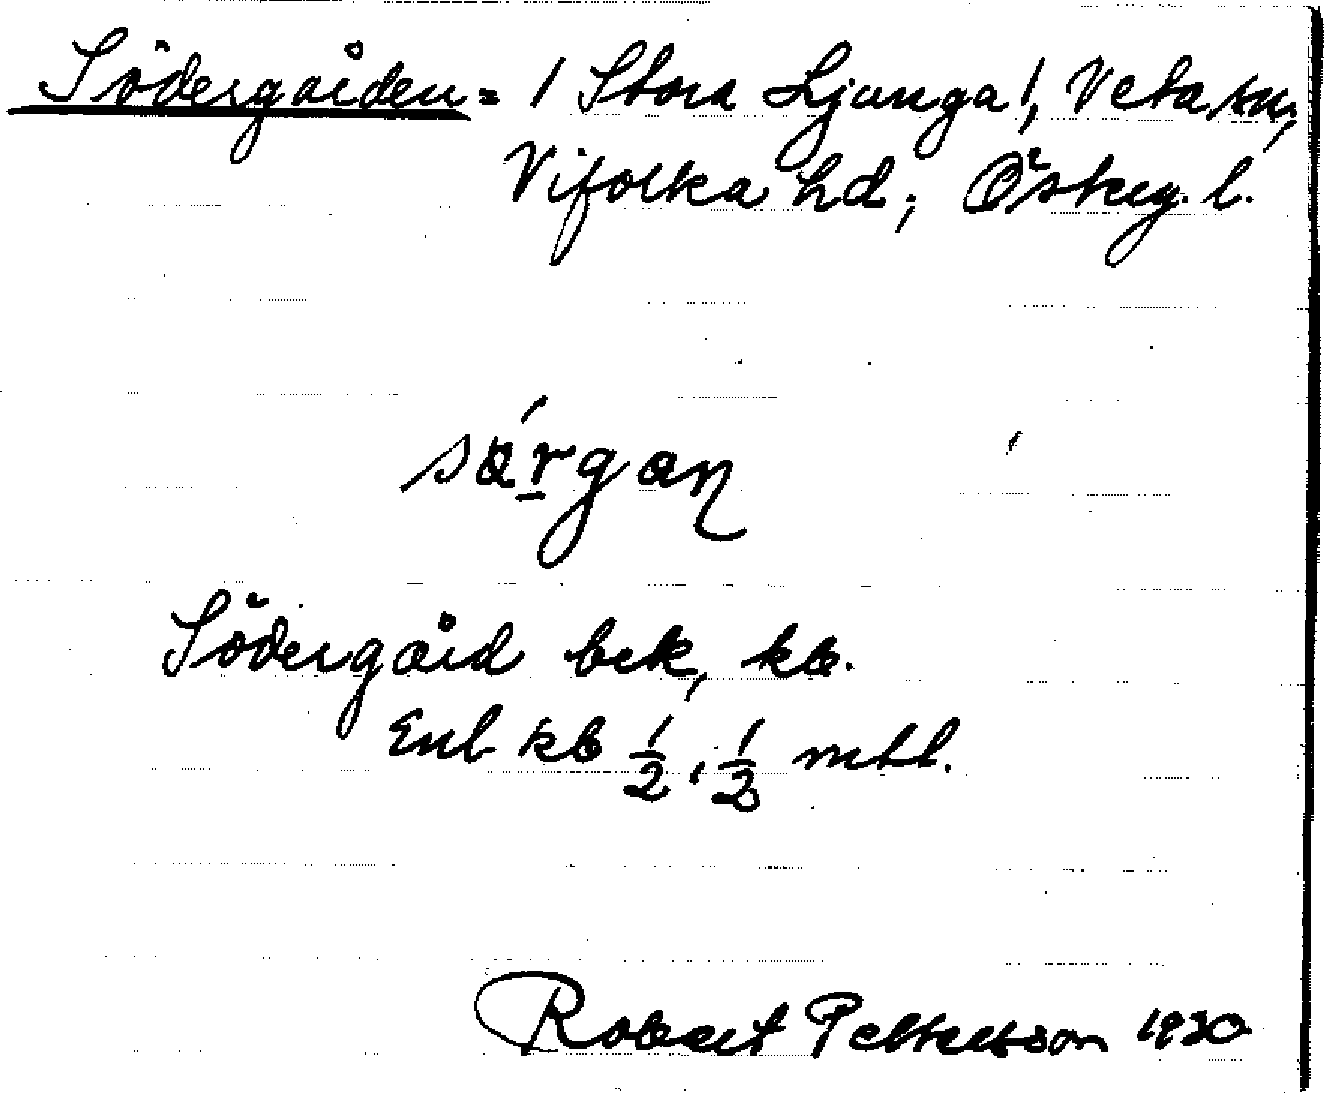 Södergården = / Stora Ljunga /, Veta sn,
Vifolka hd, Österg. l.
Södergård bek, kb.
Enl kb 1/2, 1/2 mtl.
Robert Pettersson 1930